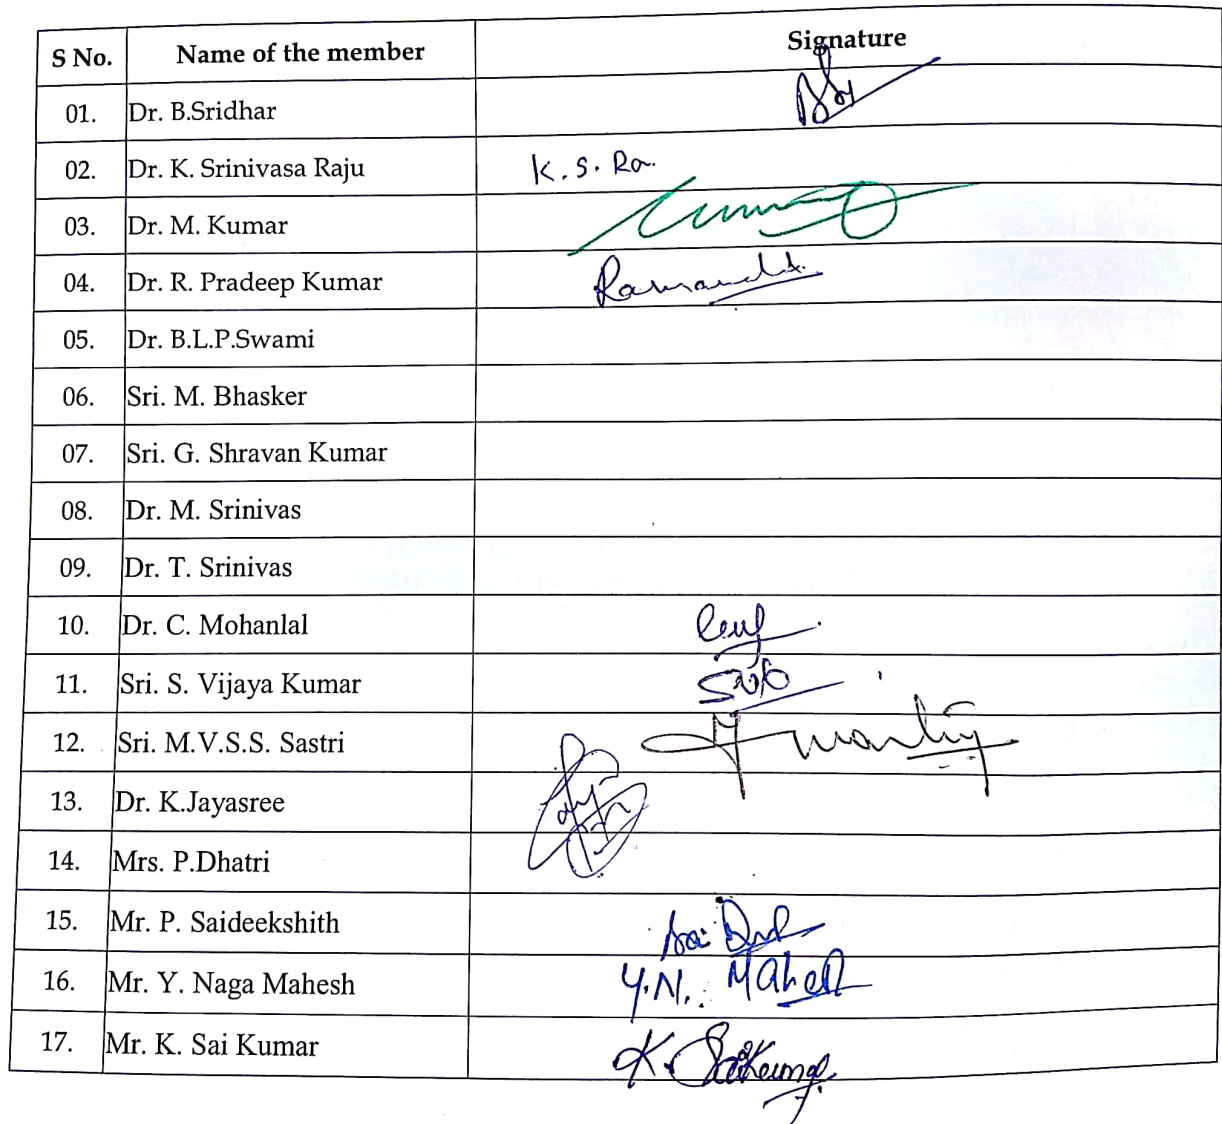 S No. Name of the member Signature
01. Dr. B.Sridhar
02. Dr. K. Srinivasa Raju K. S. Ra.
03. Dr. M. Kumar
04. Dr. R. Pradeep Kumar
05. Dr. B.L.P.Swami
06. Sri. M. Bhasker
07. Sri. G. Shravan Kumar
08. Dr. M. Srinivas
09. Dr. T. Srinivas
10. Dr. C. Mohanlal
11. Sri. S. Vijaya Kumar
12. Sri. M.V.S.S. Sastri
13. Dr. K.Jayasree
14. Mrs. P.Dhatri
15. Mr. P. Saideekshith
16. Mr. Y. Naga Mahesh Y.N. Mahesh
17. Mr. K. Sai Kumar K. SaiKumar